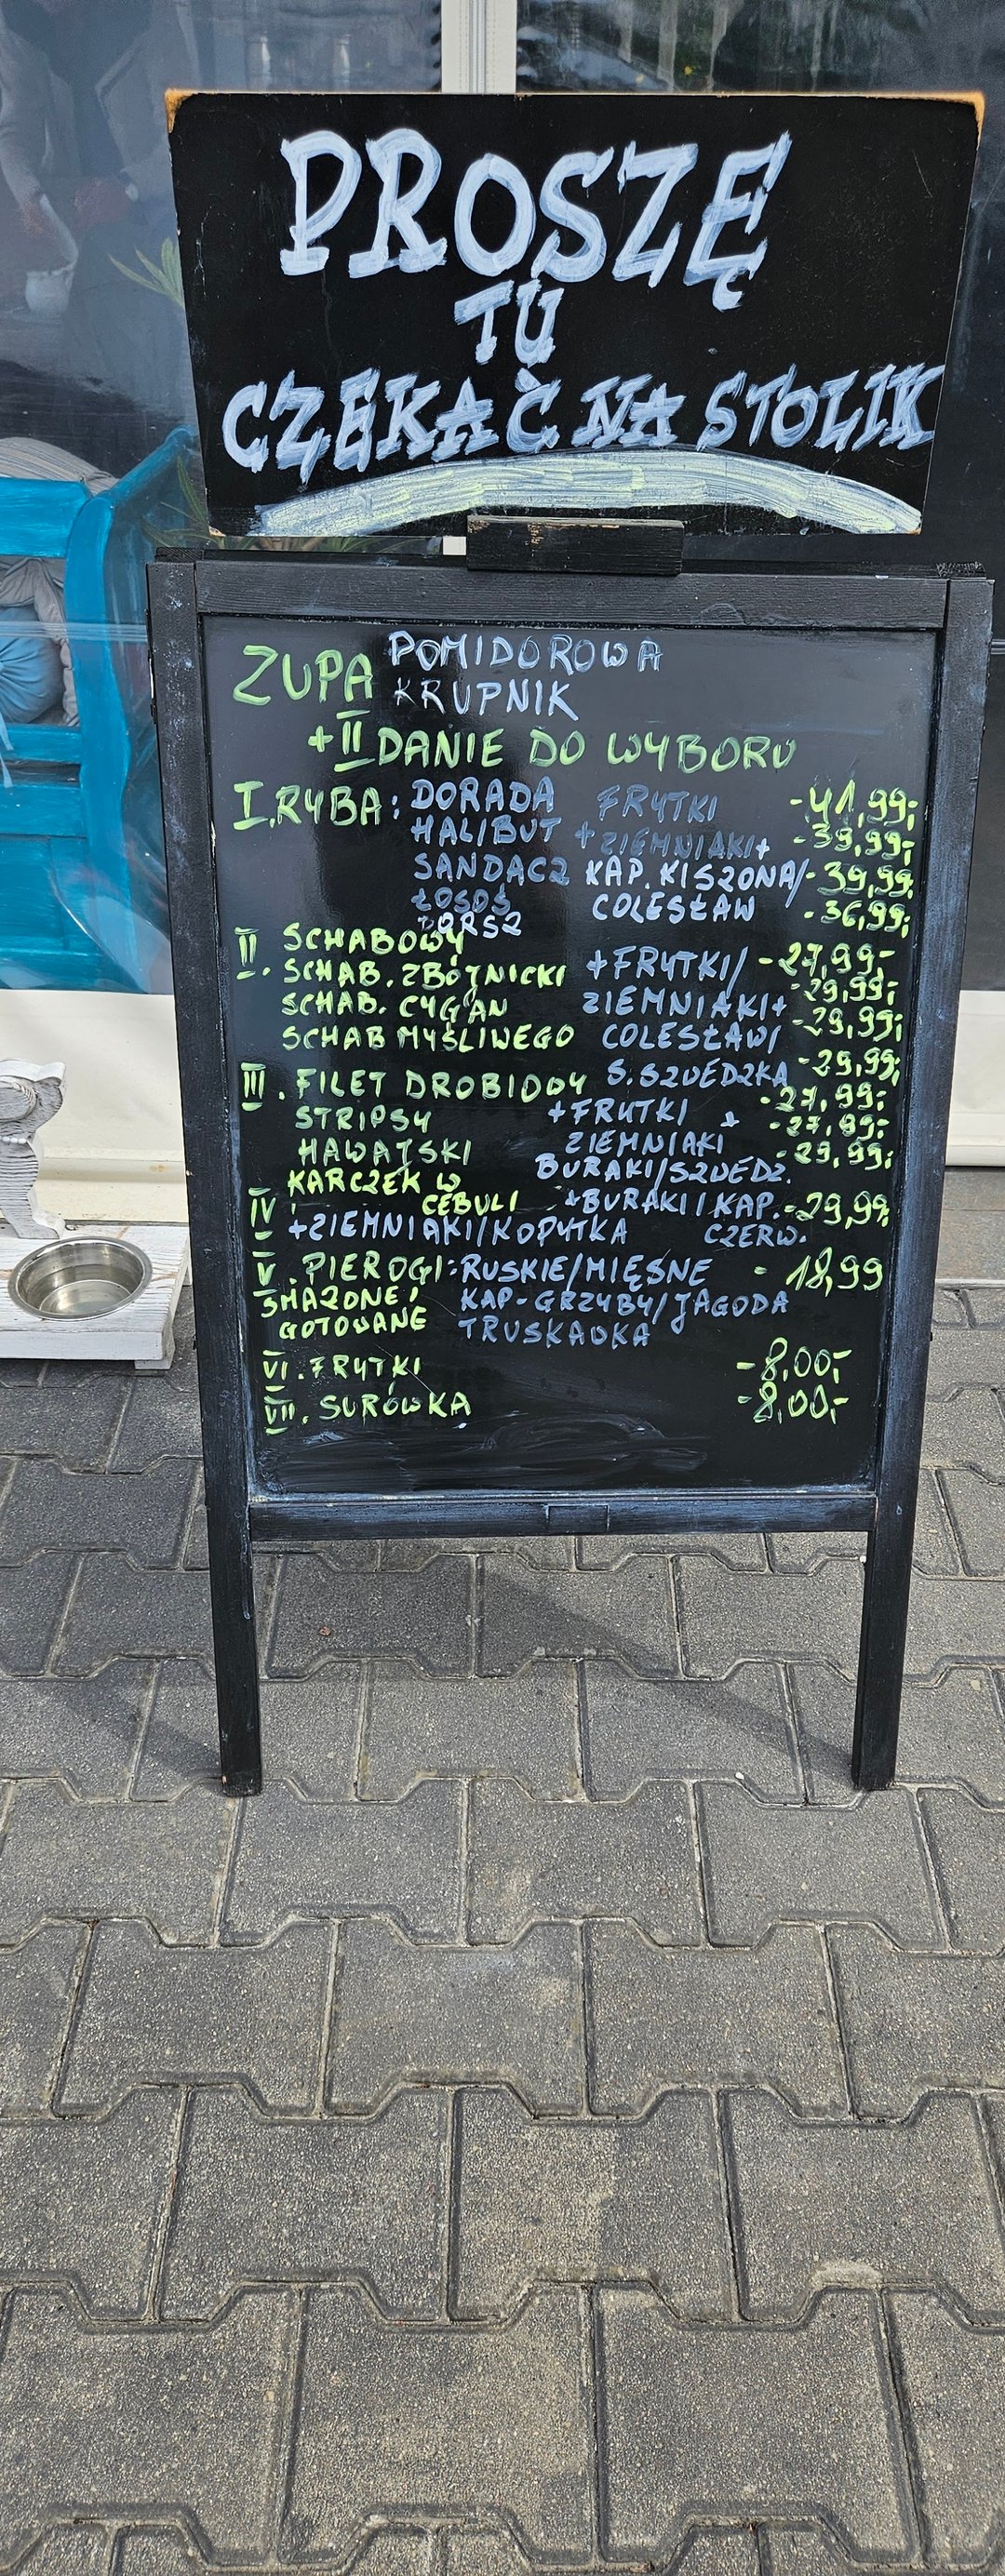 PROSZĘ
TU
CZEKAĆ NA STOLIK
ZUPA POMIDOROWA
KRUPNIK
+ II DANIE DO WYBORU
I. RYBA: DORADA FRYTKI -41,99,-
HALIBUT + ZIEMNIAKI + -39,99,-
SANDACZ KAP. KISZONA/ -39,99,
ŁOSOŚ COLESŁAW -36,99,
DORSZ
II. SCHABOWY +FRYTKI/ -27,99-
SCHAB. ZBÓJNICKI ZIEMNIAKI+ -29,99,
SCHAB. CYGAN COLESŁAW/ -29,99,
SCHAB MYŚLIWEGO S.SZWEDZKA -29,99,
III. FILET DROBIOWY +FRYTKI + -27,99,
STRIPSY ZIEMNIAKI -27,99,
HAWAJSKI BURAKI/SZWEDZ. -29,99,
IV. KARCZEK W CEBULI +BURAKI/KAP. CZERW. -29,99,
+ZIEMNIAKI/KOPYTKA
V. PIEROGI: RUSKIE/MIĘSNE - 18,99
SMAŻONE/ KAP-GRZYBY/JAGODA
GOTOWANE TRUSKAWKA
VI. FRYTKI -8,00,-
VII. SURÓWKA -8,00,-